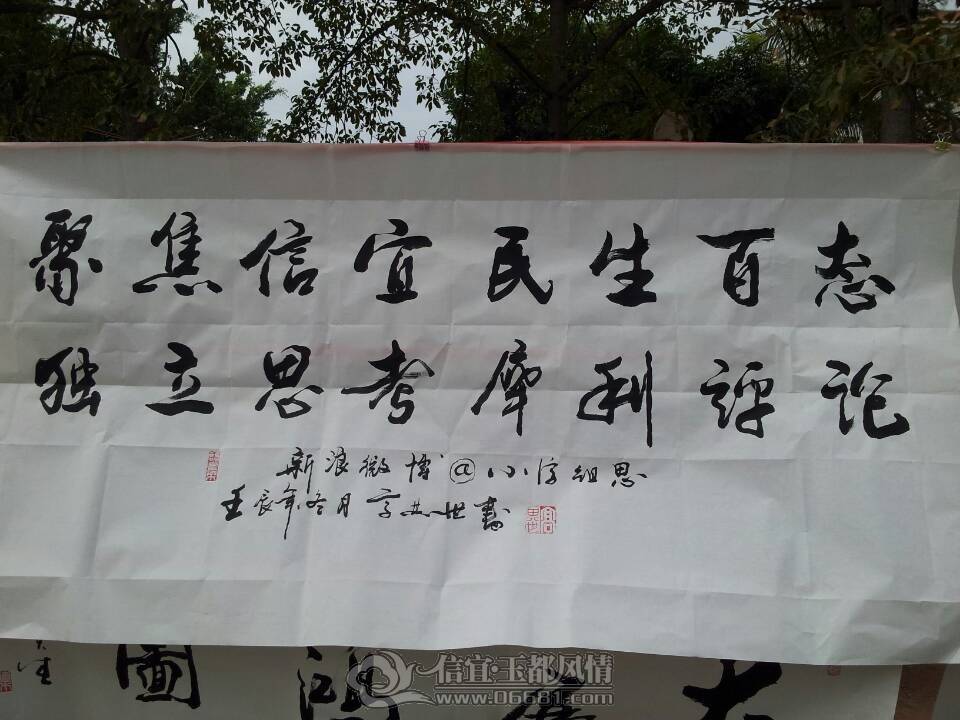 聚焦信宜民生百态
独立思考犀利评论
新浪微博@小字组思
壬辰年冬月 书
圖
信宜·玉都风情
www.06681.com